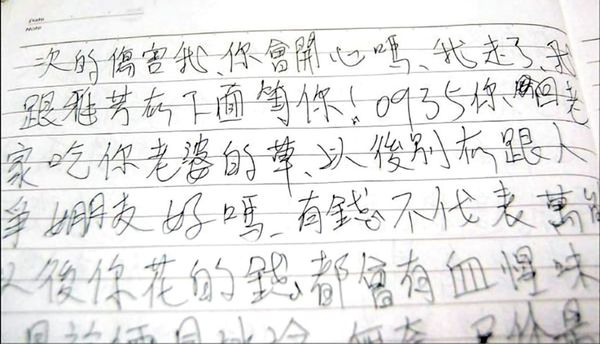 次的傷害我、你會開心嗎、我走了、我
跟雅芳在下面等你！0935你、回老
家吃你老婆的草、以後別在跟人
爭女朋友好嗎、有錢不代表萬能
以後你花的錢都會有血惺味